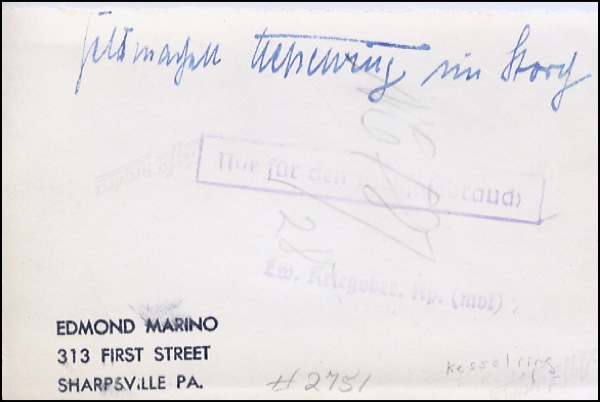 Feldmarschall Kesselring im Storch
Nur für den brauch
28
Lw. Kriegsber. Kp. (mot)
EDMOND MARINO
313 FIRST STREET
SHARPSVILLE PA.
#2751
Kesselring